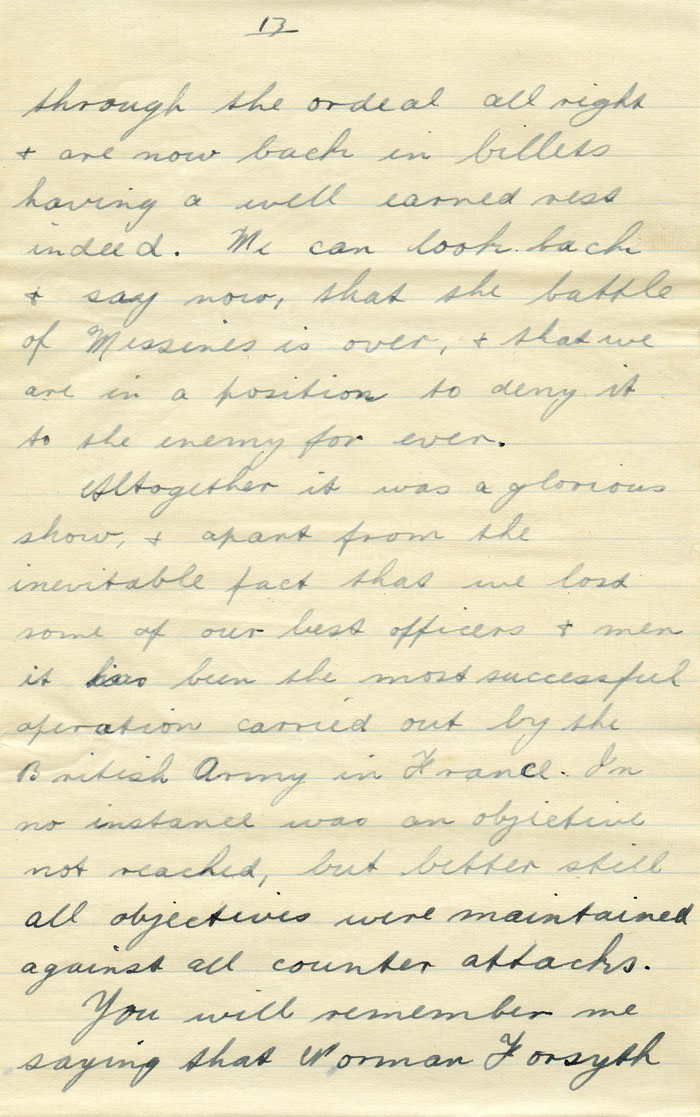 13
through the ordeal all right
& are now back in billets
having a well earned rest
indeed. We can look back
& say now, that the battle
of Messines is over, & that we
are in a position to deny it
to the enemy for ever.
Altogether it was a glorious
show, & apart from the
inevitable fact that we lost
some of our best officers & men
it has been the most successful
operation carried out by the
British Army in France. In
no instance was an objective
not reached, but better still
all objectives were maintained
against all counter attacks.
You will remember me
saying that Norman Forsyth